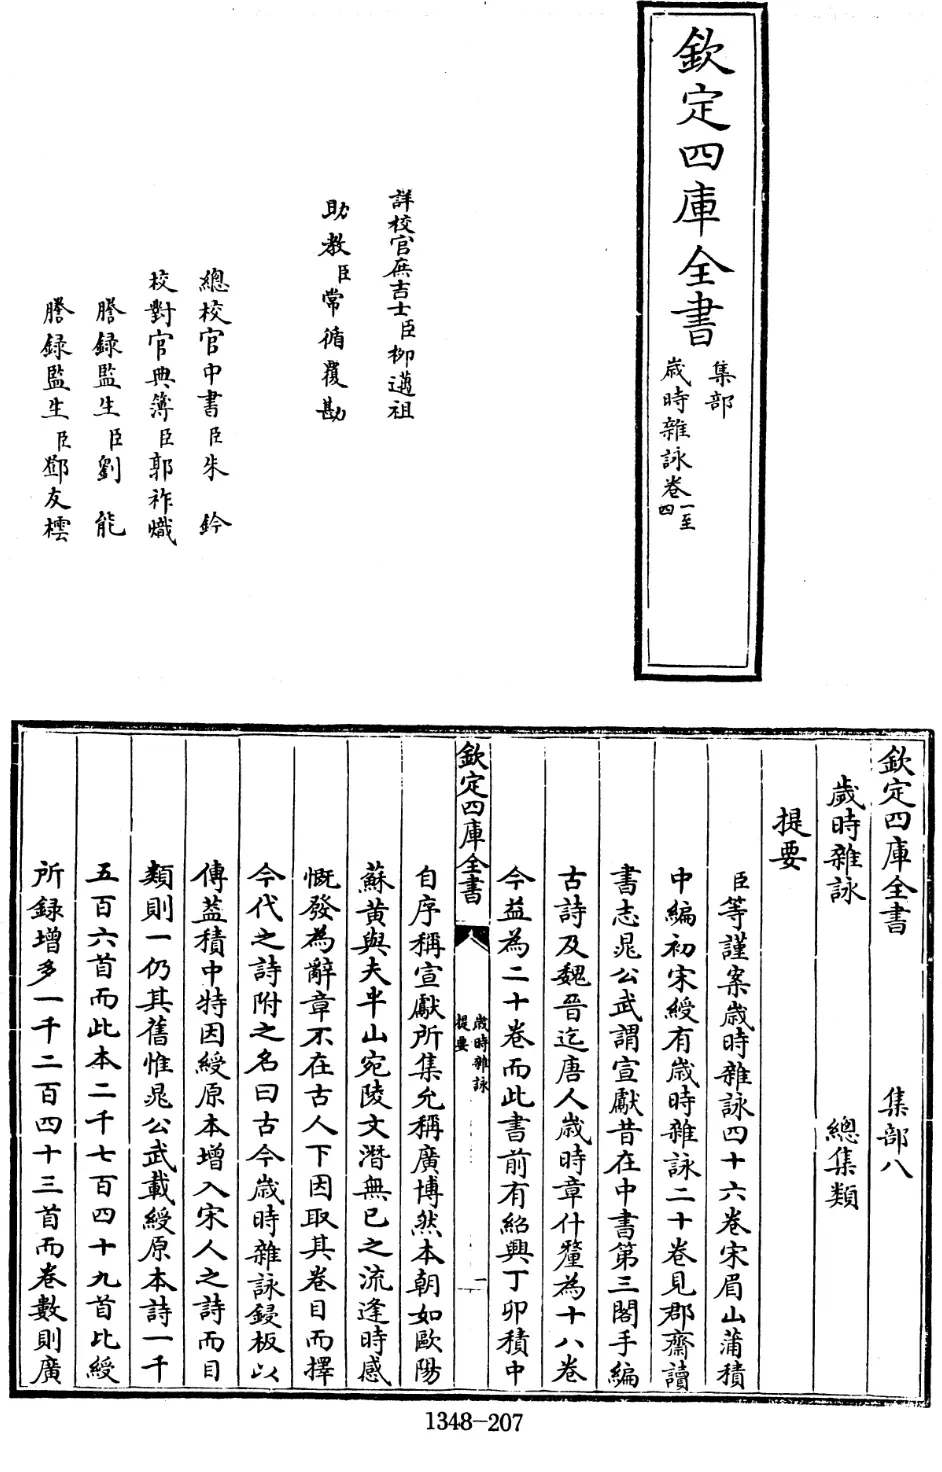 欽定四庫全書
集部
歲時雜詠卷一至四
詳校官庶吉士臣柳邁祖
助教臣常循覆勘
總校官中書臣朱鈐
校對官典簿臣郭祚熾
謄錄監生臣劉能
謄錄監生臣鄧友橒
欽定四庫全書 集部八
歲時雜詠 總集類
提要
臣等謹案歲時雜詠四十六卷宋眉山蒲積
中編初宋綬有歲時雜詠二十卷見郡齋讀
書志晁公武謂宣獻昔在中書第三閣手編
古詩及魏晉迄唐人歲時章什釐為十八卷
今益為二十卷而此書前有紹興丁卯積中
欽定四庫全書 歲時雜詠 提要 一
自序稱宣獻所集允稱廣博然本朝如歐陽
蘇黃與夫半山宛陵文潛無已之流逢時感
慨發為辭章不在古人下因取其卷目而擇
今代之詩附之名曰古今歲時雜詠鋟板以
傳葢積中特因綬原本增入宋人之詩而目
類則一仍其舊惟晁公武載綬原本詩一千
五百六首而此本二千七百四十九首比綬
所録增多一千二百四十三首而卷數則廣
1348-207